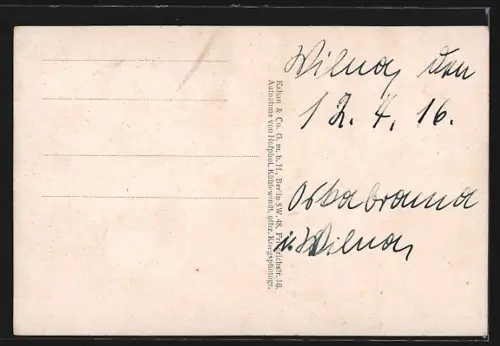 Kahan & Co. G. m. b. H., Berlin SW. 48, Friedrichstr. 16.
Aufnahme von Hofphot. Kühlewindt, offiz. Kriegsphotogr.
Wilna, den
12. 4. 16.
Ostrabrama
in Wilna,